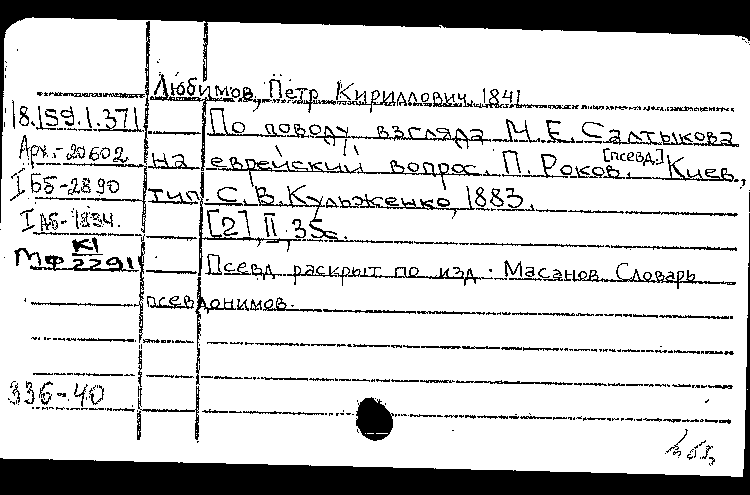 Любимов, Петр Кириллович, 1841
18.159.1.371 По поводу взгляда М.Е. Салтыкова
Арх.-20602 на еврейский вопрос. П. Роков. [псевд.] Киев,
I ББ-2890 тип. С.В. Кульженко, 1883.
I АБ-1834. [2], II, 35с.
МФ К1/22911 Псевд раскрыт по изд. Масанов Словарь
псевдонимов.
336-40